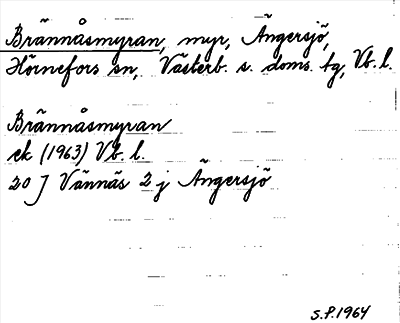 Brännåsmyran, myr, Ängersjö,
Hörnefors sn, Västerb. s. doms. tg, Vb. l.
Brännåsmyran
ek (1963) Vb. l.
20 J Vännäs 2 j Ängersjö
S.P. 1964